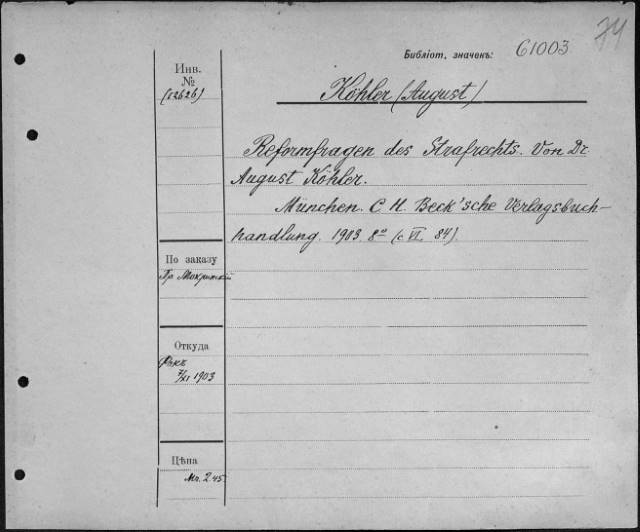 Библіот. значекъ: 61003 74
Инв.
№
(02626)
Köhler (August)
Reformfragen des Strafrechts. Von Dr.
August Köhler.
München. C. H. Beck'sche Verlagsbuch-
handlung. 1903. 8º (с VI. 84).
По заказу
Пр.
Откуда
7/XI 1903
Цѣна
Мк. 2.45